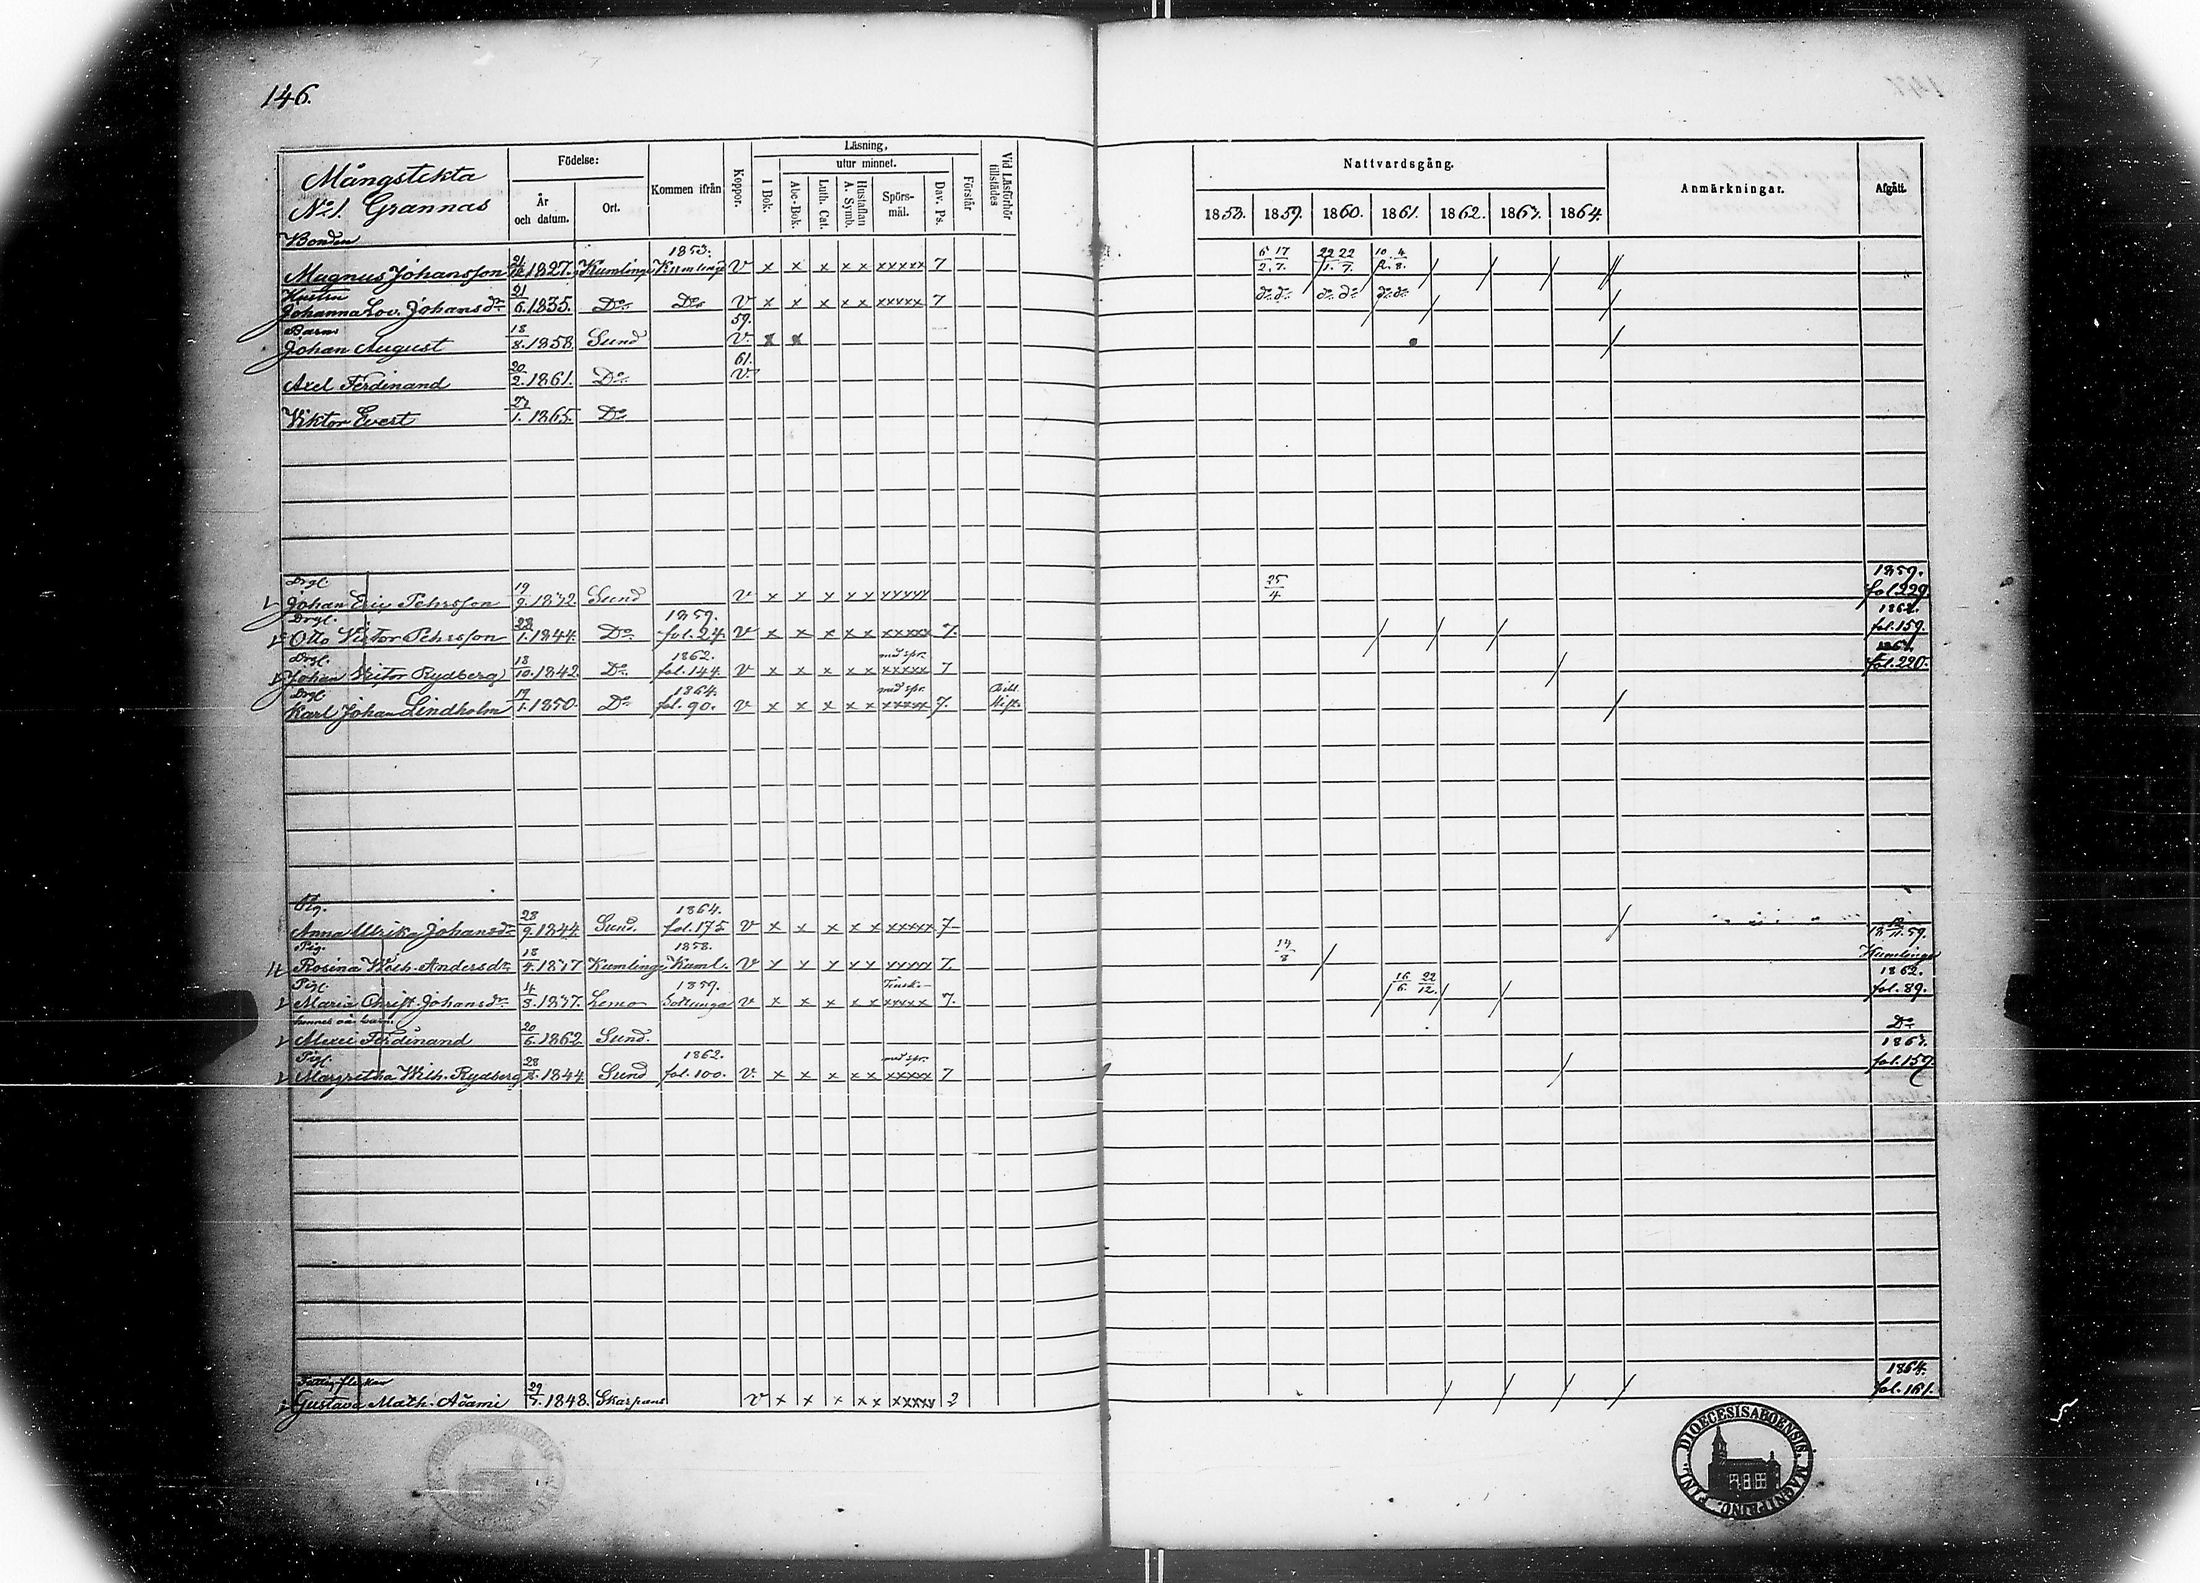 146.
Mångstekta
No 1. Grannas
Födelse:
År och datum.
Ort.
Kommen ifrån
Koppor.
Läsning,
utur minnet.
I Bok.
Abc-Bok.
Luth. Cat.
Hustaflan A. Symb.
Spörsmål.
Dav. Ps.
Förstår
Vid Läsförhör tillstädes
Nattvardsgång.
1858. 1859. 1860. 1861. 1862. 1863. 1864.
Anmärkningar.
Afgått.
Bonden 1853.
Magnus Johansson 1827. Kumlinge Kumlinge V x x x x x xxxxx 7 6/2. 17/7. 22/1. 22/7. 10/2. 4/8.
Hustru
Johanna Lov. Johansdr 21/6. 1835. Do Do V x x x x x xxxxx 7 do do do do do do
Barn 59.
Johan August 18/8. 1858. Sund V. x x
61.
Axel Ferdinand 20/2. 1861. Do V.
Viktor Evert 27/1. 1865. Do
Drgl. 1859.
Johan Eric Pehrsson 19/9. 1832 Sund V x x x x x xxxxx 25/4 fol. 229
Drgl. 1859. 1862.
Otto Victor Pehrsson 28/1. 1844. Do fol. 24. V x x x x x xxxxx 7. fol. 159.
Drgl. 1862. med spr.
Johan Victor Rydberg 18/10. 1842. Do fol. 144. V x x x x x xxxxx 7 fol. 220.
Drgl. 1864. med spr. Bibl.
Karl Johan Lindholm 19/1. 1850. Do fol. 90. V x x x x x xxxxx 7. Hist.
Pig. 1864.
Anna Ulrika Johansdr 28/9. 1844 Sund. fol. 175 V x x x x x xxxxx 7
Pig. 1858. 59.
Rosina Wilh. Andersdr 18/4. 1837 Kumlinge Kuml. V x x x x x xxxxx 7. Kumlinge
Pig. 1859. Finsk. 1862.
Maria Christ. Johansdr 4/8. 1837. Lemo Sottunga V x x x x x xxxxx 7. 16/6. 22/12. fol. 89.
hennes oä. barn
Ferdinand 20/6. 1862 Sund. Do
Pig. 1862. med spr. 1863.
Margretha Wilh. Rydberg 28/2. 1844. Sund fol. 100. V. x x x x x xxxxx 7 fol. 159
1864.
Gustava Math. Adami 1848. Skarpans V x x x x x xxxxx 2 fol. 161.
DIOECESIS ABOENSIS. MAGNI PRINC. FINL.